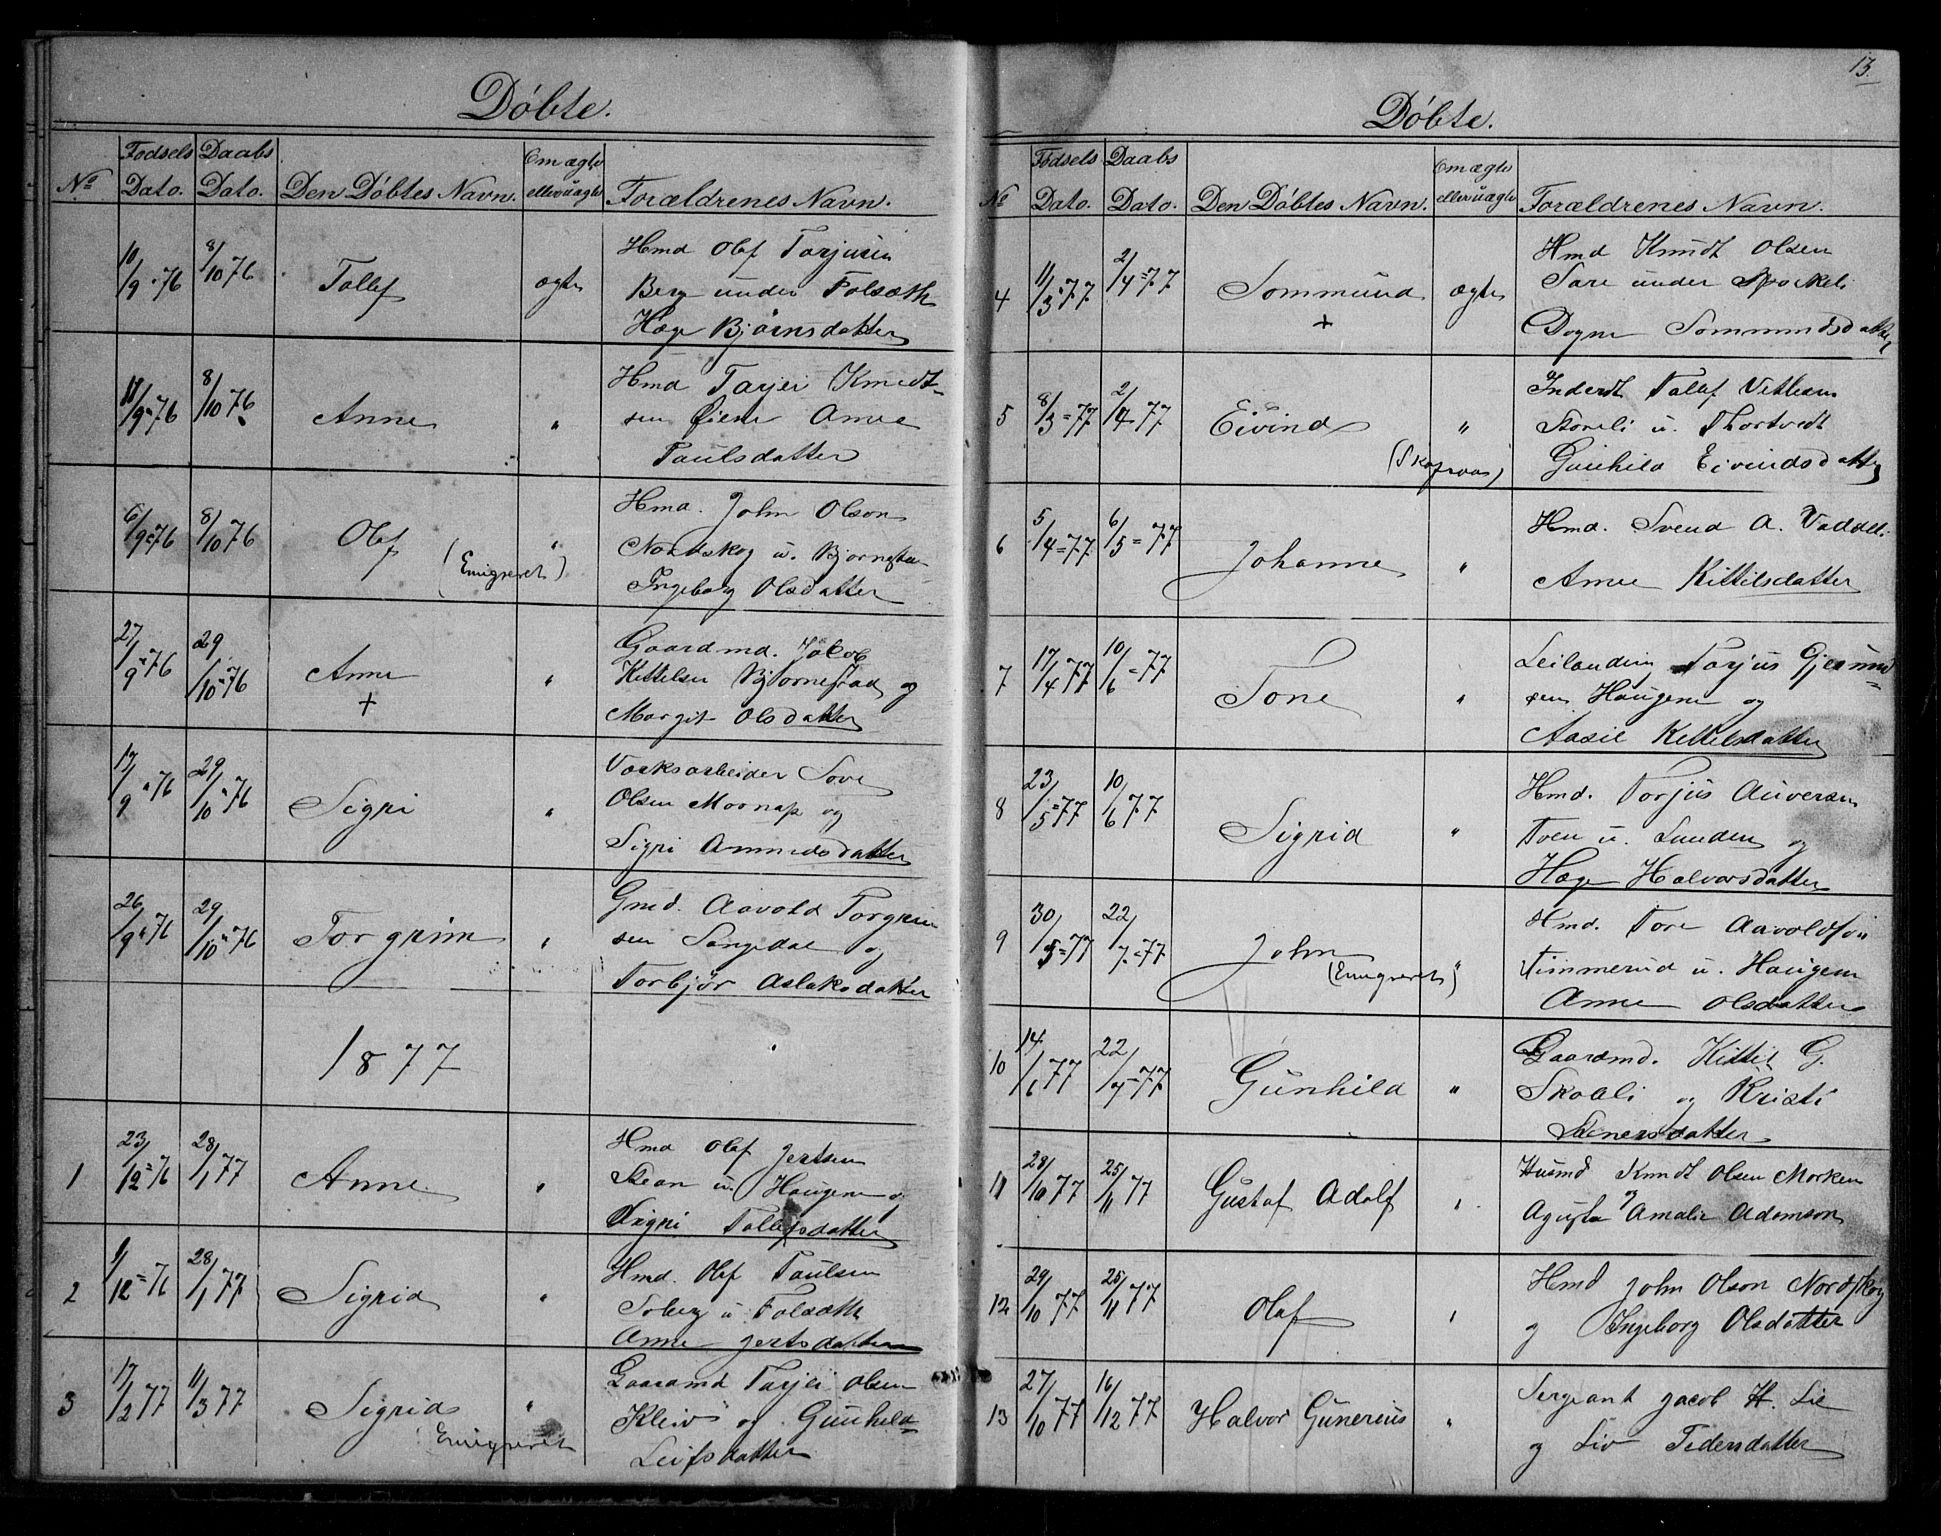 Döbte.
No Fodsels Dato. Daabs Dato. Den Döbtes Navn. Om ægte eller uægte Forældrenes Navn.
10/9 76 8/10 76 Tollef ægte Hmd Olef Tarjusen
Berg under Folsæth
Hæge Bjørnsdatter
11/9 76 8/10 76 Anne " Hmd Tarjei Knudt-
sen Øiene Anne
Paulsdatter
6/9 76 8/10 76 Olef (Emigreret) " Hmd. John Olson
Nordskog u.
Ingeborg Olsdatter
27/9 76 29/10 76 Anne + " Gaardmd. Jakob
Kittelsen Bjørnestad og
Margit Olsdatter
17/9 76 29/10 76 Sigri " Værksarbeider Tove
Olsen og
Sigri Amundsdatter
26/9 76 29/10 76 Torgrim " Gmd. Aavold Torgrim
sen og
Torbjør Aslaksdatter
1877
1 23/12 76 28/1 77 Anne " Hmd Olef Jertsen
u. Haugene o.
Sigri Tollefsdatter
2 9/12 76 28/1 77 Sigrid " Hmd. Olef Paulsen
u Folsæth
Anne Jertsdatter
3 17/2 77 11/3 77 Sigrid Emigreret " Gaardmd Tarjei Olsen
Kleiv og Gunhild
Leifsdatter
13.
Döbte.
No Födsels Dato. Daabs Dato. Den Döbtes Navn. Om ægte eller uægte Forældrenes Navn.
4 11/3 77 2/4 77 Sommund + ægte Hmd Knudt Olsen
under
Dogne Sommundsdatter
5 8/3 77 2/4 77 Eivind (Skafsaas) " Inderst Tollef
u. Thortvedt
Gunhild Eivindsdatter
6 5/4 77 6/5 77 Johanne " Hmd. Svend A.
Anne Kittilsdatter
7 17/4 77 10/6 77 Tone " Leilænding Tarjus Gjermund
sen Haugene og
Aasil Kittelsdatter
8 23/5 77 10/6 77 Sigrid " Hmd. Torjus Auversen
Tveu u. Lunden og
Hæge Halvorsdatter
9 30/5 77 22/7 77 John (Emigreret) " Hmd. Tore Aavoldson
Timmerud u. Haugene
Anne Olsdatter
10 14/6 77 22/7 77 Gunhild " Gaardmd. Kittil G.
Skoali og Kristi
Stenersdatter
11 28/10 77 25/11 77 Gustaf Adolf " Husmd Knudt Olsen Morken
og
Agusta Amalie Adamson
12 29/10 77 25/11 77 Olaf " Hmd John Olson Nordskog
og Ingeborg Olsdatter
13 27/10 77 16/12 77 Halvor Gunerius " Sergeant Jacob H. Lie
og Liv Pedersdatter